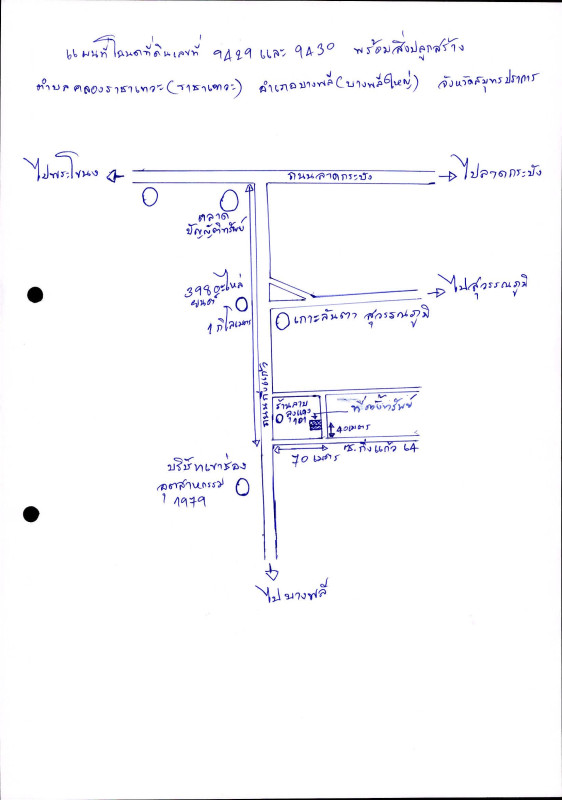 แผนที่โฉนดที่ดินเลขที่ 9429 และ 9430 พร้อมสิ่งปลูกสร้าง
ตำบลคลองราชาเทวะ(ราชาเทวะ) อำเภอบางพลี(บางพลีใหญ่) จังหวัดสมุทรปราการ
ไปพระโขนง
ถนนลาดกระบัง
ไปลาดกระบัง
ตลาด
ปัญญัติทรัพย์
398อะไหล่
ยนต์
1 กิโลเมตร
ไปสุวรรณภูมิ
เกาะลันตา สุวรรณภูมิ
ถนนกิ่งแก้ว
ร้านลาบ
ลุงแดง
101
ที่ตั้งทรัพย์
40เมตร
70 เมตร
ซ.กิ่งแก้ว 64
บริษัทเขาช่อง
อุตสาหกรรม
1979
ไปบางพลี